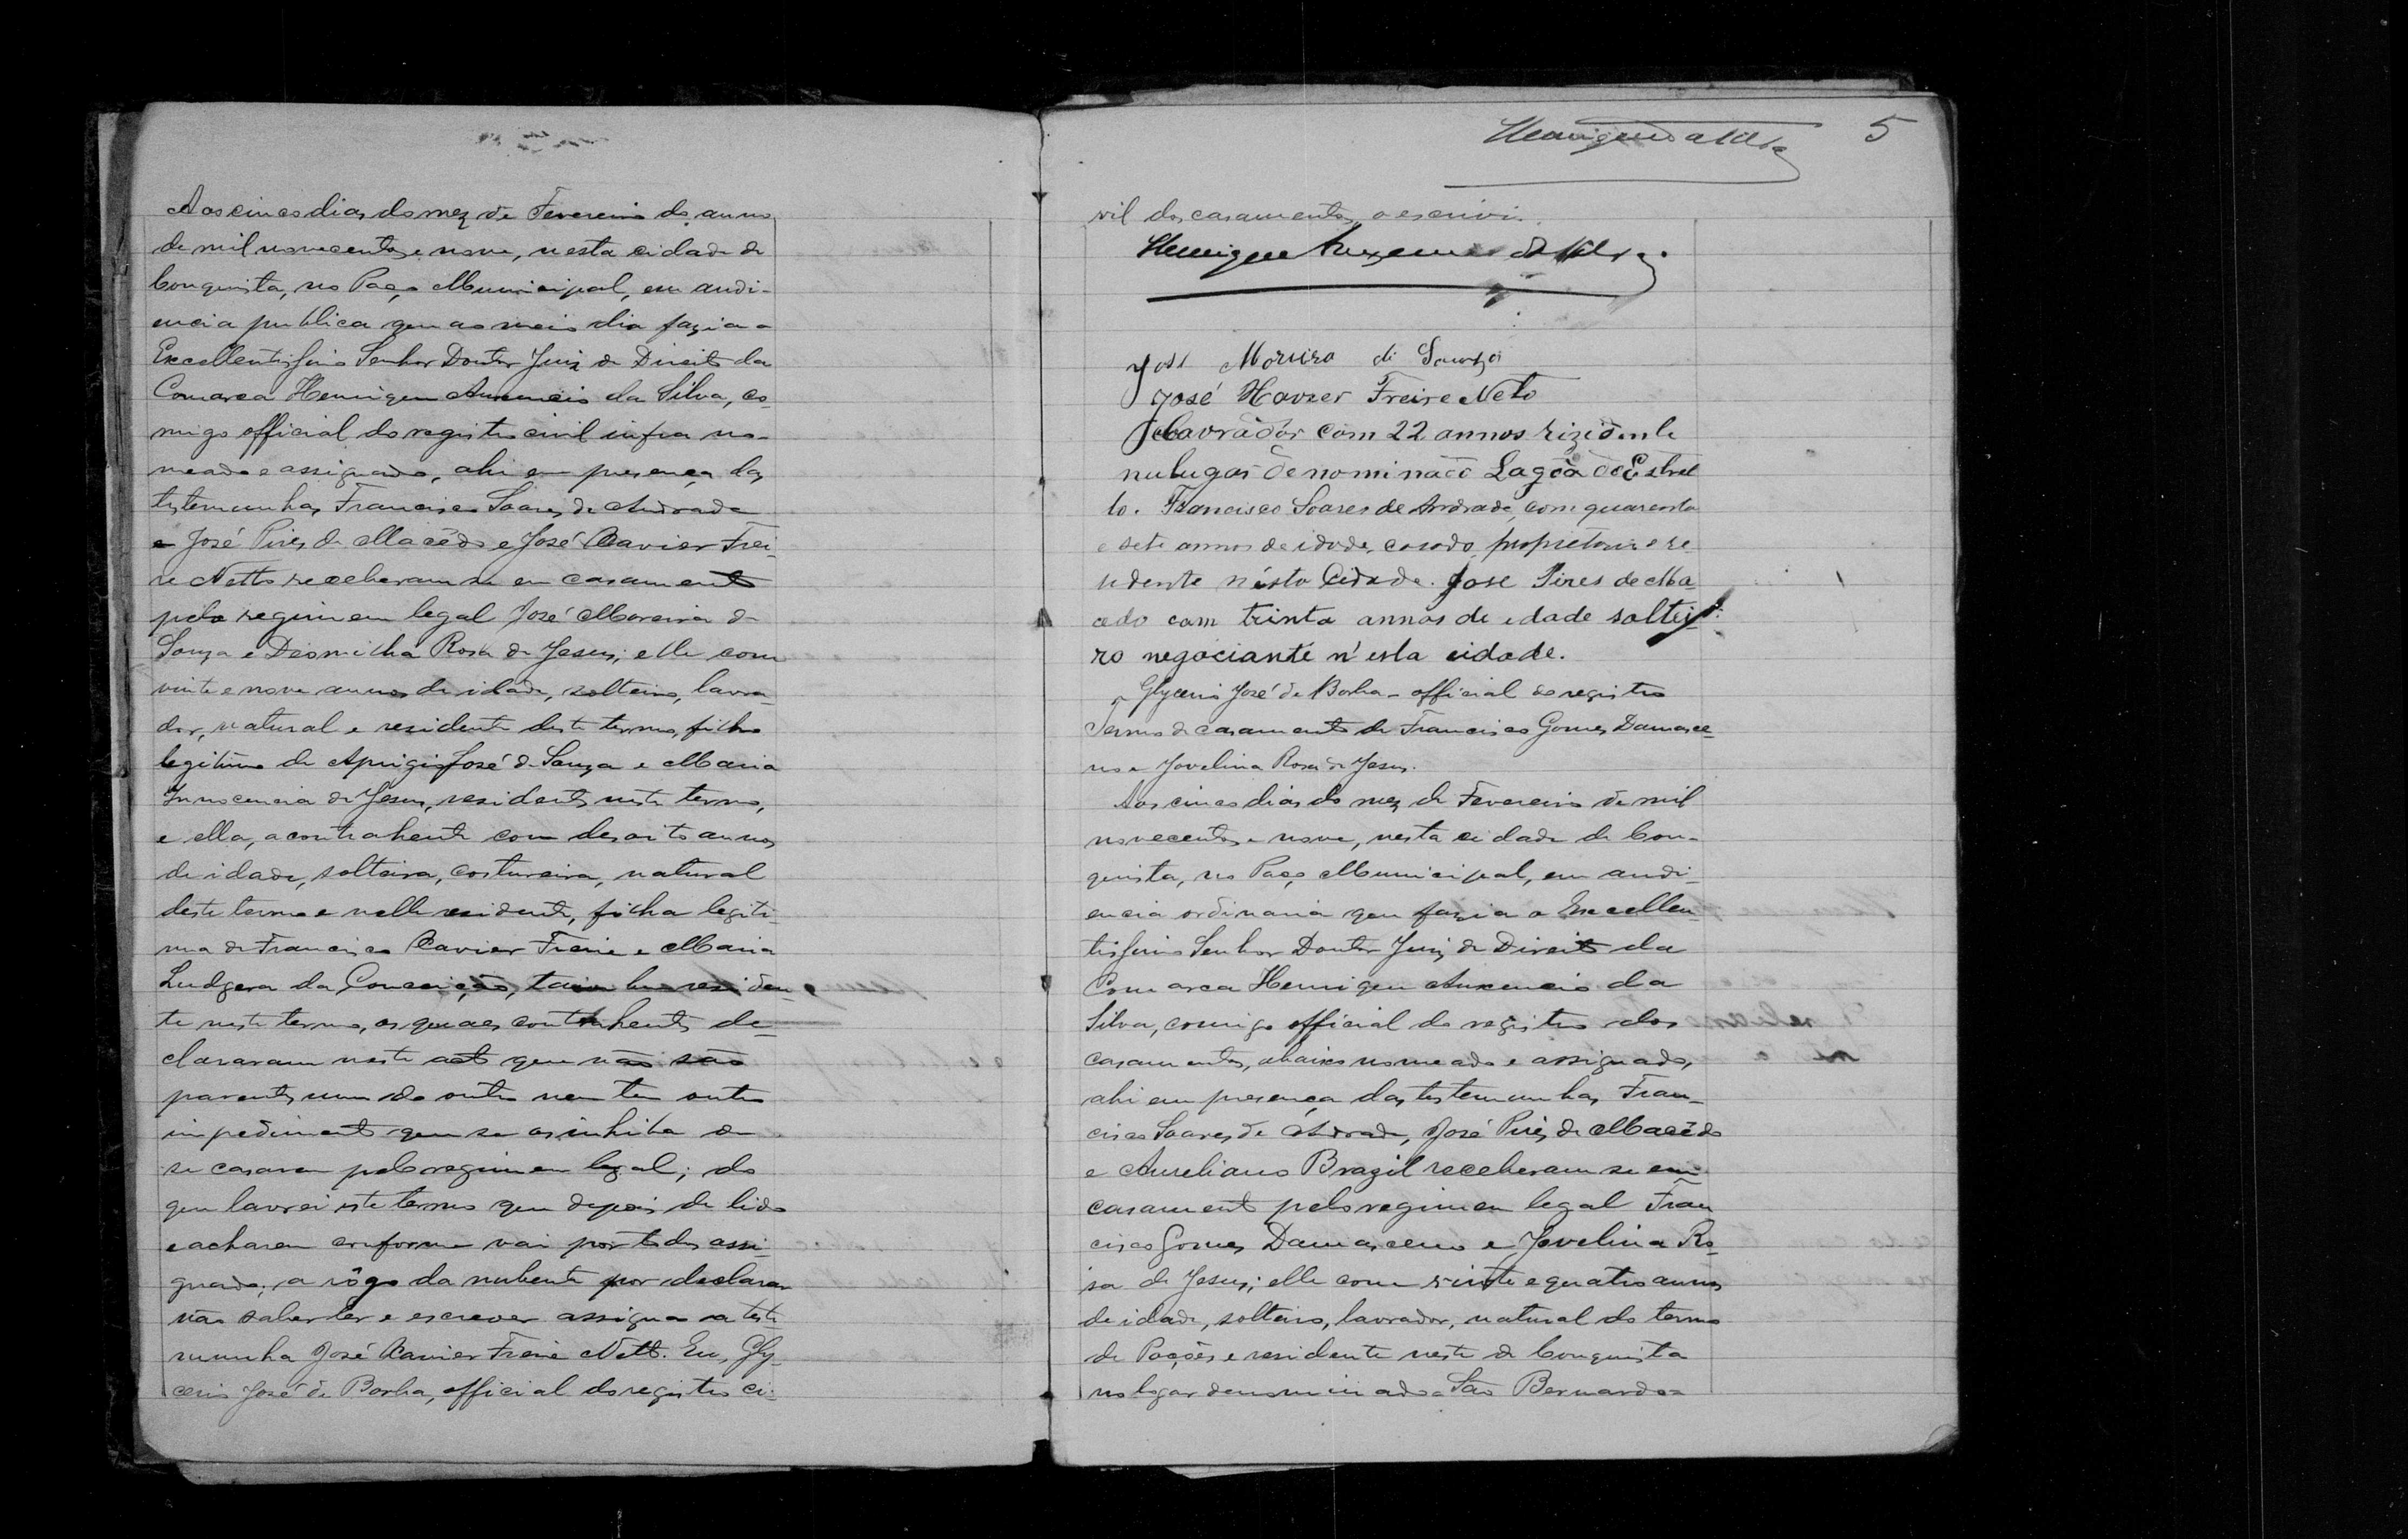 Aos cinco dias do mez de Fevereiro do anno
de mil novecentos e nove, nesta cidade de
Conquista, no Paço Municipal, em audi-
encia publica que ao meio dia fazia o
Excellentissimo Senhor Doutor Juiz de Direito da
Comarca Henrique Auxencio da Silva, co-
migo official do registro civil infra no-
meado e assignado, ahi em presença das
testemunhas Francisco Soares de Andrade
e José Pires de Macêdo e José Xavier Frei-
re Netto receberam se em casamento
pelo regimem legal José Moreira de
Souza e Diomilha Rosa de Jesus; elle com
vinte e nove annos de idade, solteiro, lavra-
dor, natural e residente deste termo, filho
legitimo de Aprigio José de Souza e Maria
Innocencia de Jesus, residentes neste termo,
e ella, a contrahente com desoito annos
de idade, solteira, costureira, natural
deste termo e nelle residente, filha legiti-
ma de Francisco Xavier Freire e Maria
Ludgera da Conceição, tambem residen-
te neste termo, os quaes contrahentes de-
clararam neste acto que não são
parentes um do outro nem tem outro
impedimento que se os inhiba de
se casarem pelo regimem legal; do
que lavrei este termo que depois de lido
e acharem conforme vai por todos assi-
gnado; a rôgo da nubente por declarar
não saber ler e escrever assigna a teste-
munha José Xavier Freire Netto. Eu, Gly-
cerio José de Borba, official do registro ci-
5
vil dos casamentos, o escrivi.
Henrique Auxencio da Silva
José Moreira di Souza
José Xavier Freire Neto
Lavrador com 22 annos rizidente
nulugar denominado Lagôa do Estrel
lo. Francisco Soares de Andrade, com quarenta
e sete annos de idade, casado, proprietario e re
sidente nésta Cidade. Jose Pires de Ma-
cedo com trinta annos de edade soltei-
ro negocianté n'esta cidade.
Glycerio José de Borba - official do registro
Termo de casamento de Francisco Gomes Damasce-
no e Jovelina Rosa de Jesus.
Aos cinco dias do mez de Fevereiro de mil
novecentos e nove, nesta cidade de Con-
quista, no Paço Municipal, em audi-
encia ordinaria que fazia o Excellen-
tissimo Senhor Doutor Juiz de Direito da
Comarca Henrique Auxencio da
Silva, comigo official do registro dos
casamentos, abaixo nomeado e assignado,
ahi em presença das testemunhas Fran-
cisco Soares de Andrade, José Pires de Macêdo
e Aureliano Brazil receberam se em
casamento pelo regimem legal Fran
cisco Gomes Damasceno e Jovelina Ro-
sa de Jesus; elle com vinte e quatro annos
de idade, solteiro, lavrador, natural do termo
de Poções e residente neste de Conquista
no logar denominado São Bernardo